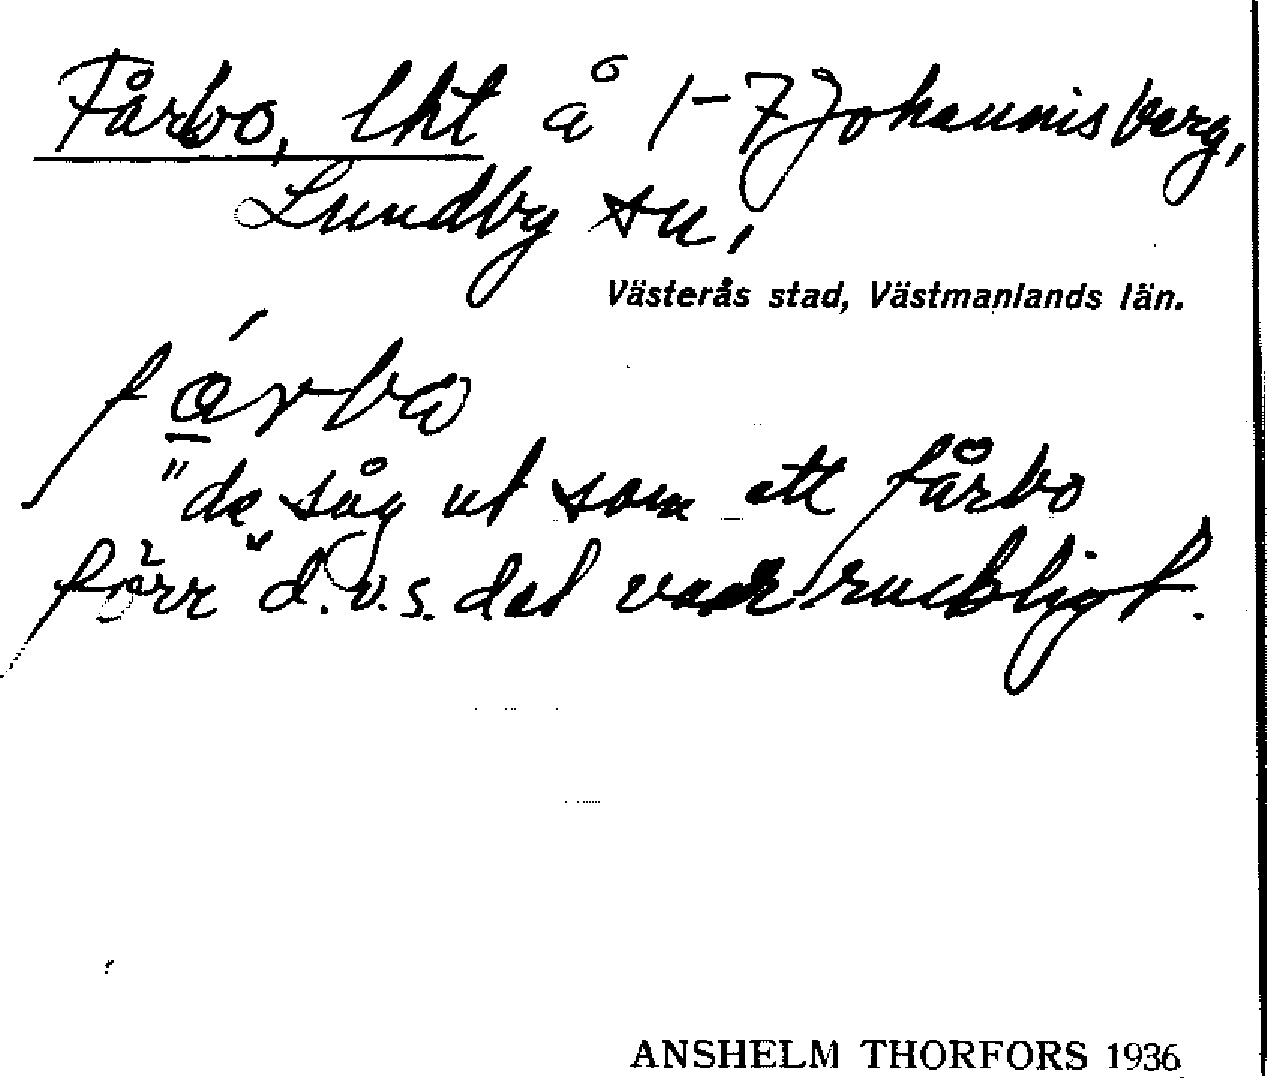 Fårbo, lht å 1-7 Johannisberg,
Lundby sn,
Västerås stad, Västmanlands län.
"de såg ut som ett fårbo
förr" d.v.s. det var ruckligt.
ANSHELM THORFORS 1936